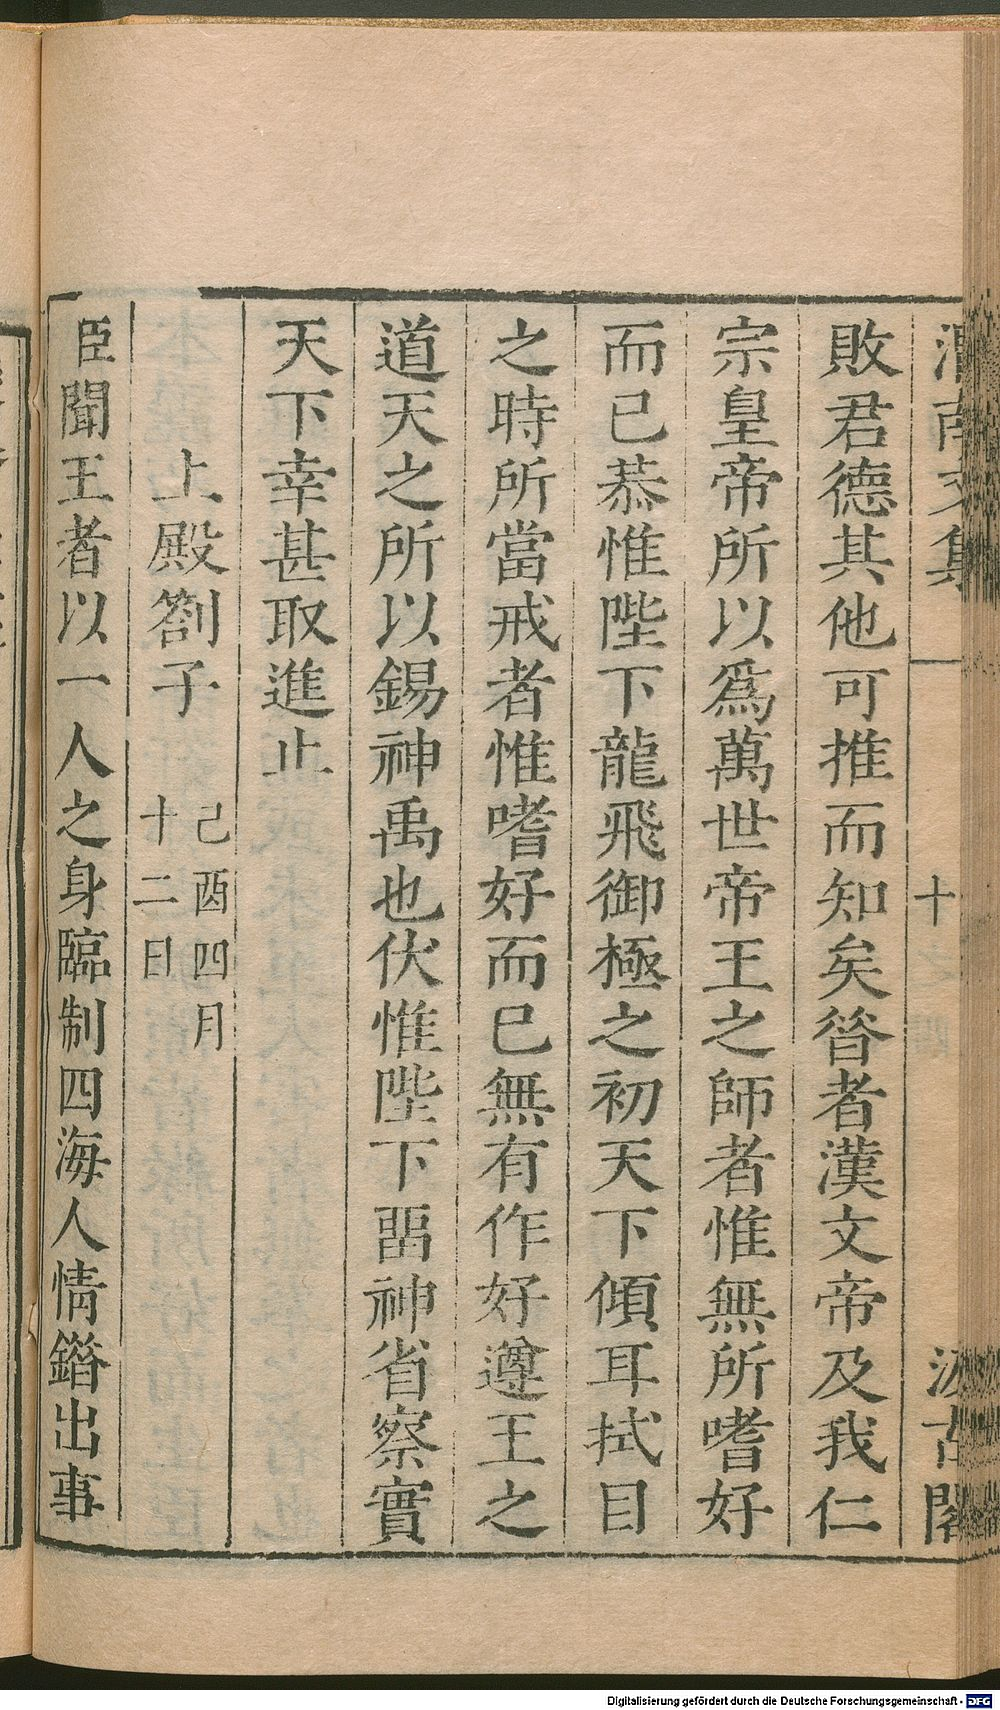 渭南文集 十 汲古閣
敗君德其他可推而知矣昝者漢文帝及我仁
宗皇帝所以爲萬世帝王之師者惟無所嗜好
而已恭惟陛下龍飛御極之初天下傾耳拭目
之時所當戒者惟嗜好而已無有作好遵王之
道天之所以錫神禹也伏惟陛下畱神省察實
天下幸甚取進止
上殿劄子 己酉四月
十二日
臣聞王者以一人之身臨制四海人情錯出事
Digitalisierung gefördert durch die Deutsche Forschungsgemeinschaft - DFG